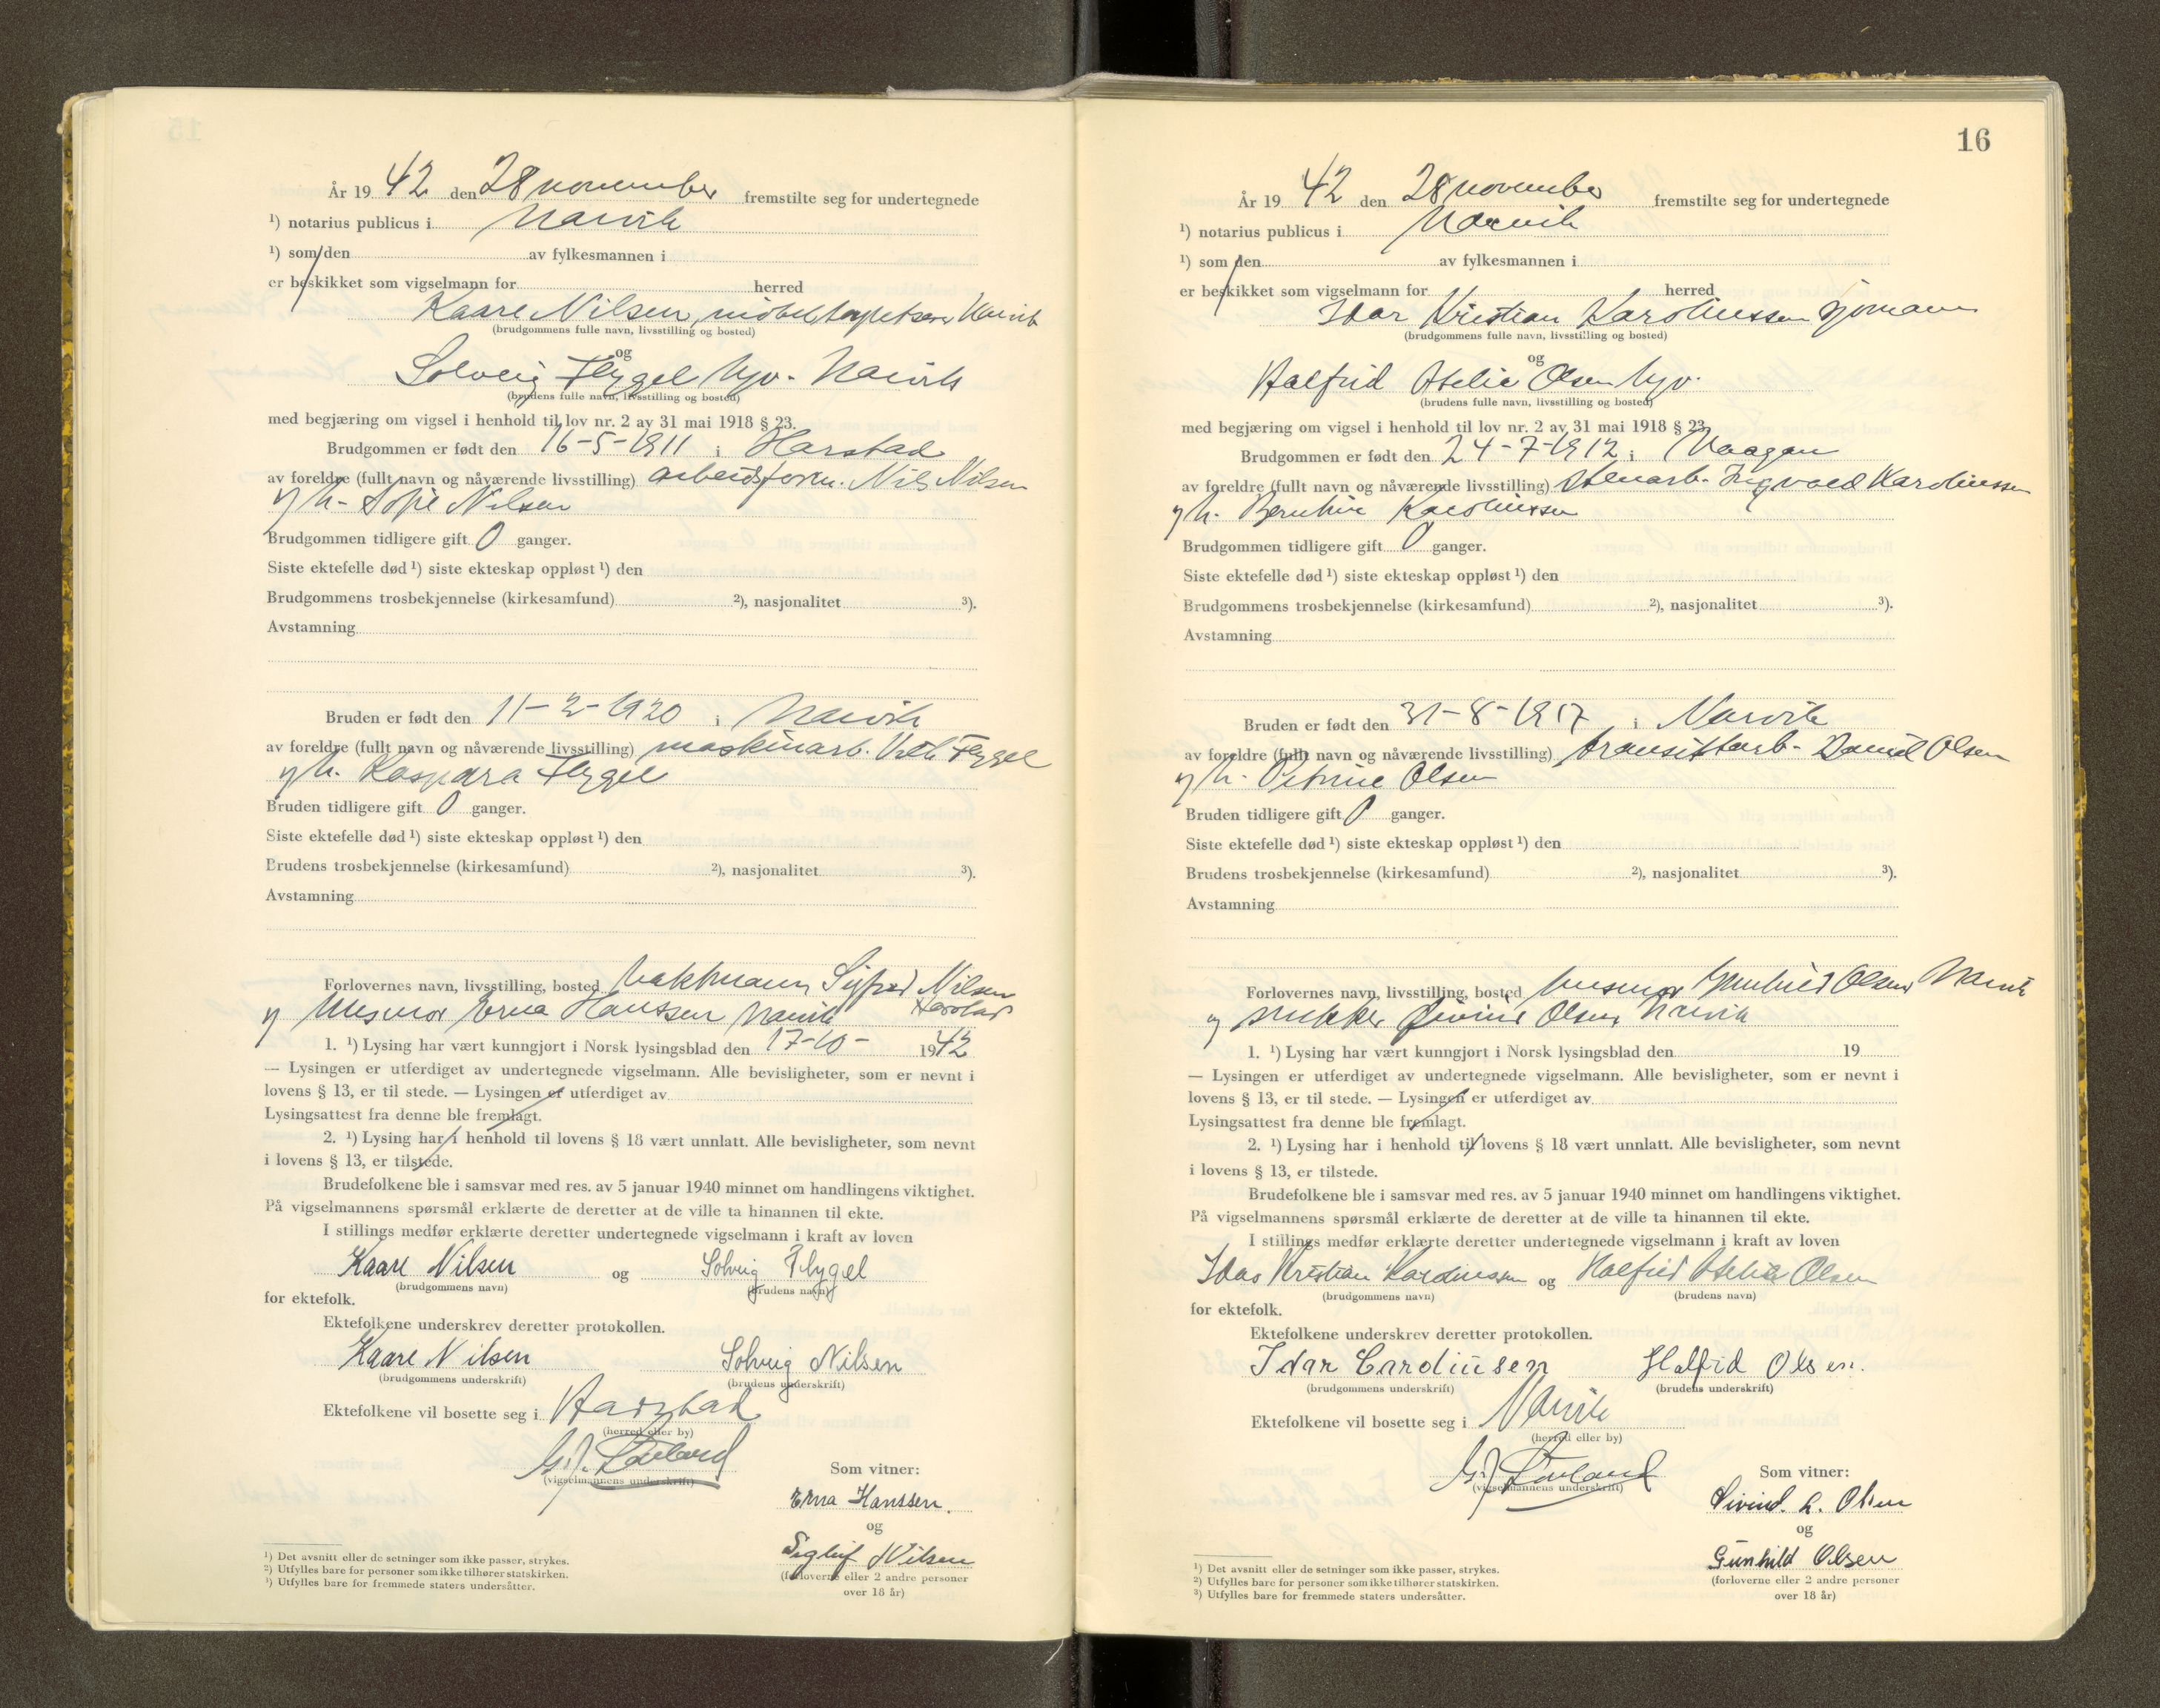 År 19 42 den 28 november fremstilte seg for undertegnede
¹) notarius publicus i Narvik
¹) som den av fylkesmannen i
er beskikket som vigselmann for herred
Kaare Nilsen, møbeltapetserer Narvik
(brudgommens fulle navn, livsstilling og bosted)
og
Solveig Flygel hjv. Narvik
(brudens fulle navn, livsstilling og bosted)
med begjæring om vigsel i henhold til lov nr. 2 av 31 mai 1918 § 23.
Brudgommen er født den 16-5-1911 i Harstad
av foreldre (fullt navn og nåværende livsstilling) arbeidsform. Nils Nilsen
og h. Sofie Nilsen
Brudgommen tidligere gift 0 ganger.
Siste ektefelle død ¹) siste ekteskap oppløst ¹) den
Brudgommens trosbekjennelse (kirkesamfund) ²), nasjonalitet ³).
Avstamning
Bruden er født den 11-2-1920 i Narvik
av foreldre (fullt navn og nåværende livsstilling) maskinarb. Flygel
og h. Kaspara Flygel
Bruden tidligere gift 0 ganger.
Siste ektefelle død ¹) siste ekteskap oppløst ¹) den
Brudens trosbekjennelse (kirkesamfund) ²), nasjonalitet ³).
Avstamning
Forlovernes navn, livsstilling, bosted vaktmann Nilsen
Harstad
og husmor Erna Hanssen Narvik
1. ¹) Lysing har vært kunngjort i Norsk lysingsblad den 17-10- 1942
— Lysingen er utferdiget av undertegnede vigselmann. Alle bevisligheter, som er nevnt i
lovens § 13, er til stede. — Lysingen er utferdiget av
Lysingsattest fra denne ble fremlagt.
2. ¹) Lysing har i henhold til lovens § 18 vært unnlatt. Alle bevisligheter, som nevnt
i lovens § 13, er tilstede.
Brudefolkene ble i samsvar med res. av 5 januar 1940 minnet om handlingens viktighet.
På vigselmannens spørsmål erklærte de deretter at de ville ta hinannen til ekte.
I stillings medfør erklærte deretter undertegnede vigselmann i kraft av loven
Kaare Nilsen og Solveig Flygel
(brudgommens navn) (brudens navn)
for ektefolk.
Ektefolkene underskrev deretter protokollen.
Kaare Nilsen Solveig Nilsen
(brudgommens underskrift) (brudens underskrift)
Ektefolkene vil bosette seg i Harstad
(herred eller by)
(vigselmannens underskrift)
Som vitner:
Erna Hanssen.
og
Nilsen
(forloverne eller 2 andre personer
over 18 år)
¹) Det avsnitt eller de setninger som ikke passer, strykes.
²) Utfylles bare for personer som ikke tilhører statskirken.
³) Utfylles bare for fremmede staters undersåtter.
16
År 19 42 den 28 november fremstilte seg for undertegnede
¹) notarius publicus i Narvik
¹) som den av fylkesmannen i
er beskikket som vigselmann for herred
Idar Kristian Karolinssen sjømann
(brudgommens fulle navn, livsstilling og bosted)
og
Halfrid Olsen hjv.
(brudens fulle navn, livsstilling og bosted)
med begjæring om vigsel i henhold til lov nr. 2 av 31 mai 1918 § 23.
Brudgommen er født den 24-7-1912 i Vaagan
av foreldre (fullt navn og nåværende livsstilling) stenarb. Ingvald Karolinssen
og h. Karolinssen
Brudgommen tidligere gift 0 ganger.
Siste ektefelle død ¹) siste ekteskap oppløst ¹) den
Brudgommens trosbekjennelse (kirkesamfund) ²), nasjonalitet ³).
Avstamning
Bruden er født den 31-8-1917 i Narvik
av foreldre (fullt navn og nåværende livsstilling) transittarb. Daniel Olsen
og h. Petrine Olsen
Bruden tidligere gift 0 ganger.
Siste ektefelle død ¹) siste ekteskap oppløst ¹) den
Brudens trosbekjennelse (kirkesamfund) ²), nasjonalitet ³).
Avstamning
Forlovernes navn, livsstilling, bosted husmor Gunhild Olsen Narvik
og snekker Øivind Olsen Narvik
1. ¹) Lysing har vært kunngjort i Norsk lysingsblad den 19
— Lysingen er utferdiget av undertegnede vigselmann. Alle bevisligheter, som er nevnt i
lovens § 13, er til stede. — Lysingen er utferdiget av
Lysingsattest fra denne ble fremlagt.
2. ¹) Lysing har i henhold til lovens § 18 vært unnlatt. Alle bevisligheter, som nevnt
i lovens § 13, er tilstede.
Brudefolkene ble i samsvar med res. av 5 januar 1940 minnet om handlingens viktighet.
På vigselmannens spørsmål erklærte de deretter at de ville ta hinannen til ekte.
I stillings medfør erklærte deretter undertegnede vigselmann i kraft av loven
Idar Kristian Karolinssen og Halfrid Olsen
(brudgommens navn) (brudens navn)
for ektefolk.
Ektefolkene underskrev deretter protokollen.
Idar Carolinsen Halfrid Olsen.
(brudgommens underskrift) (brudens underskrift)
Ektefolkene vil bosette seg i Narvik
(herred eller by)
(vigselmannens underskrift)
Som vitner:
Øivind. L. Olsen
og
Gunhild Olsen
(forloverne eller 2 andre personer
over 18 år)
¹) Det avsnitt eller de setninger som ikke passer, strykes.
²) Utfylles bare for personer som ikke tilhører statskirken.
³) Utfylles bare for fremmede staters undersåtter.